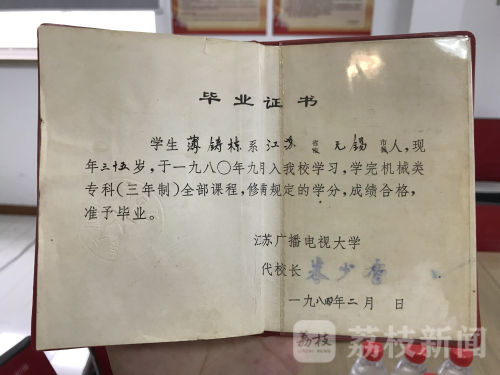 毕业证书
学生 薄铸栋 系 江苏 省 无锡 市 人,现
年三十五岁,于一九八〇年九月入我校学习,学完机械类
专科(三年制)全部课程,修满规定的学分,成绩合格,
准予毕业。
江苏广播电视大学
代校长
一九八四年二月 日
荔枝
荔枝新闻